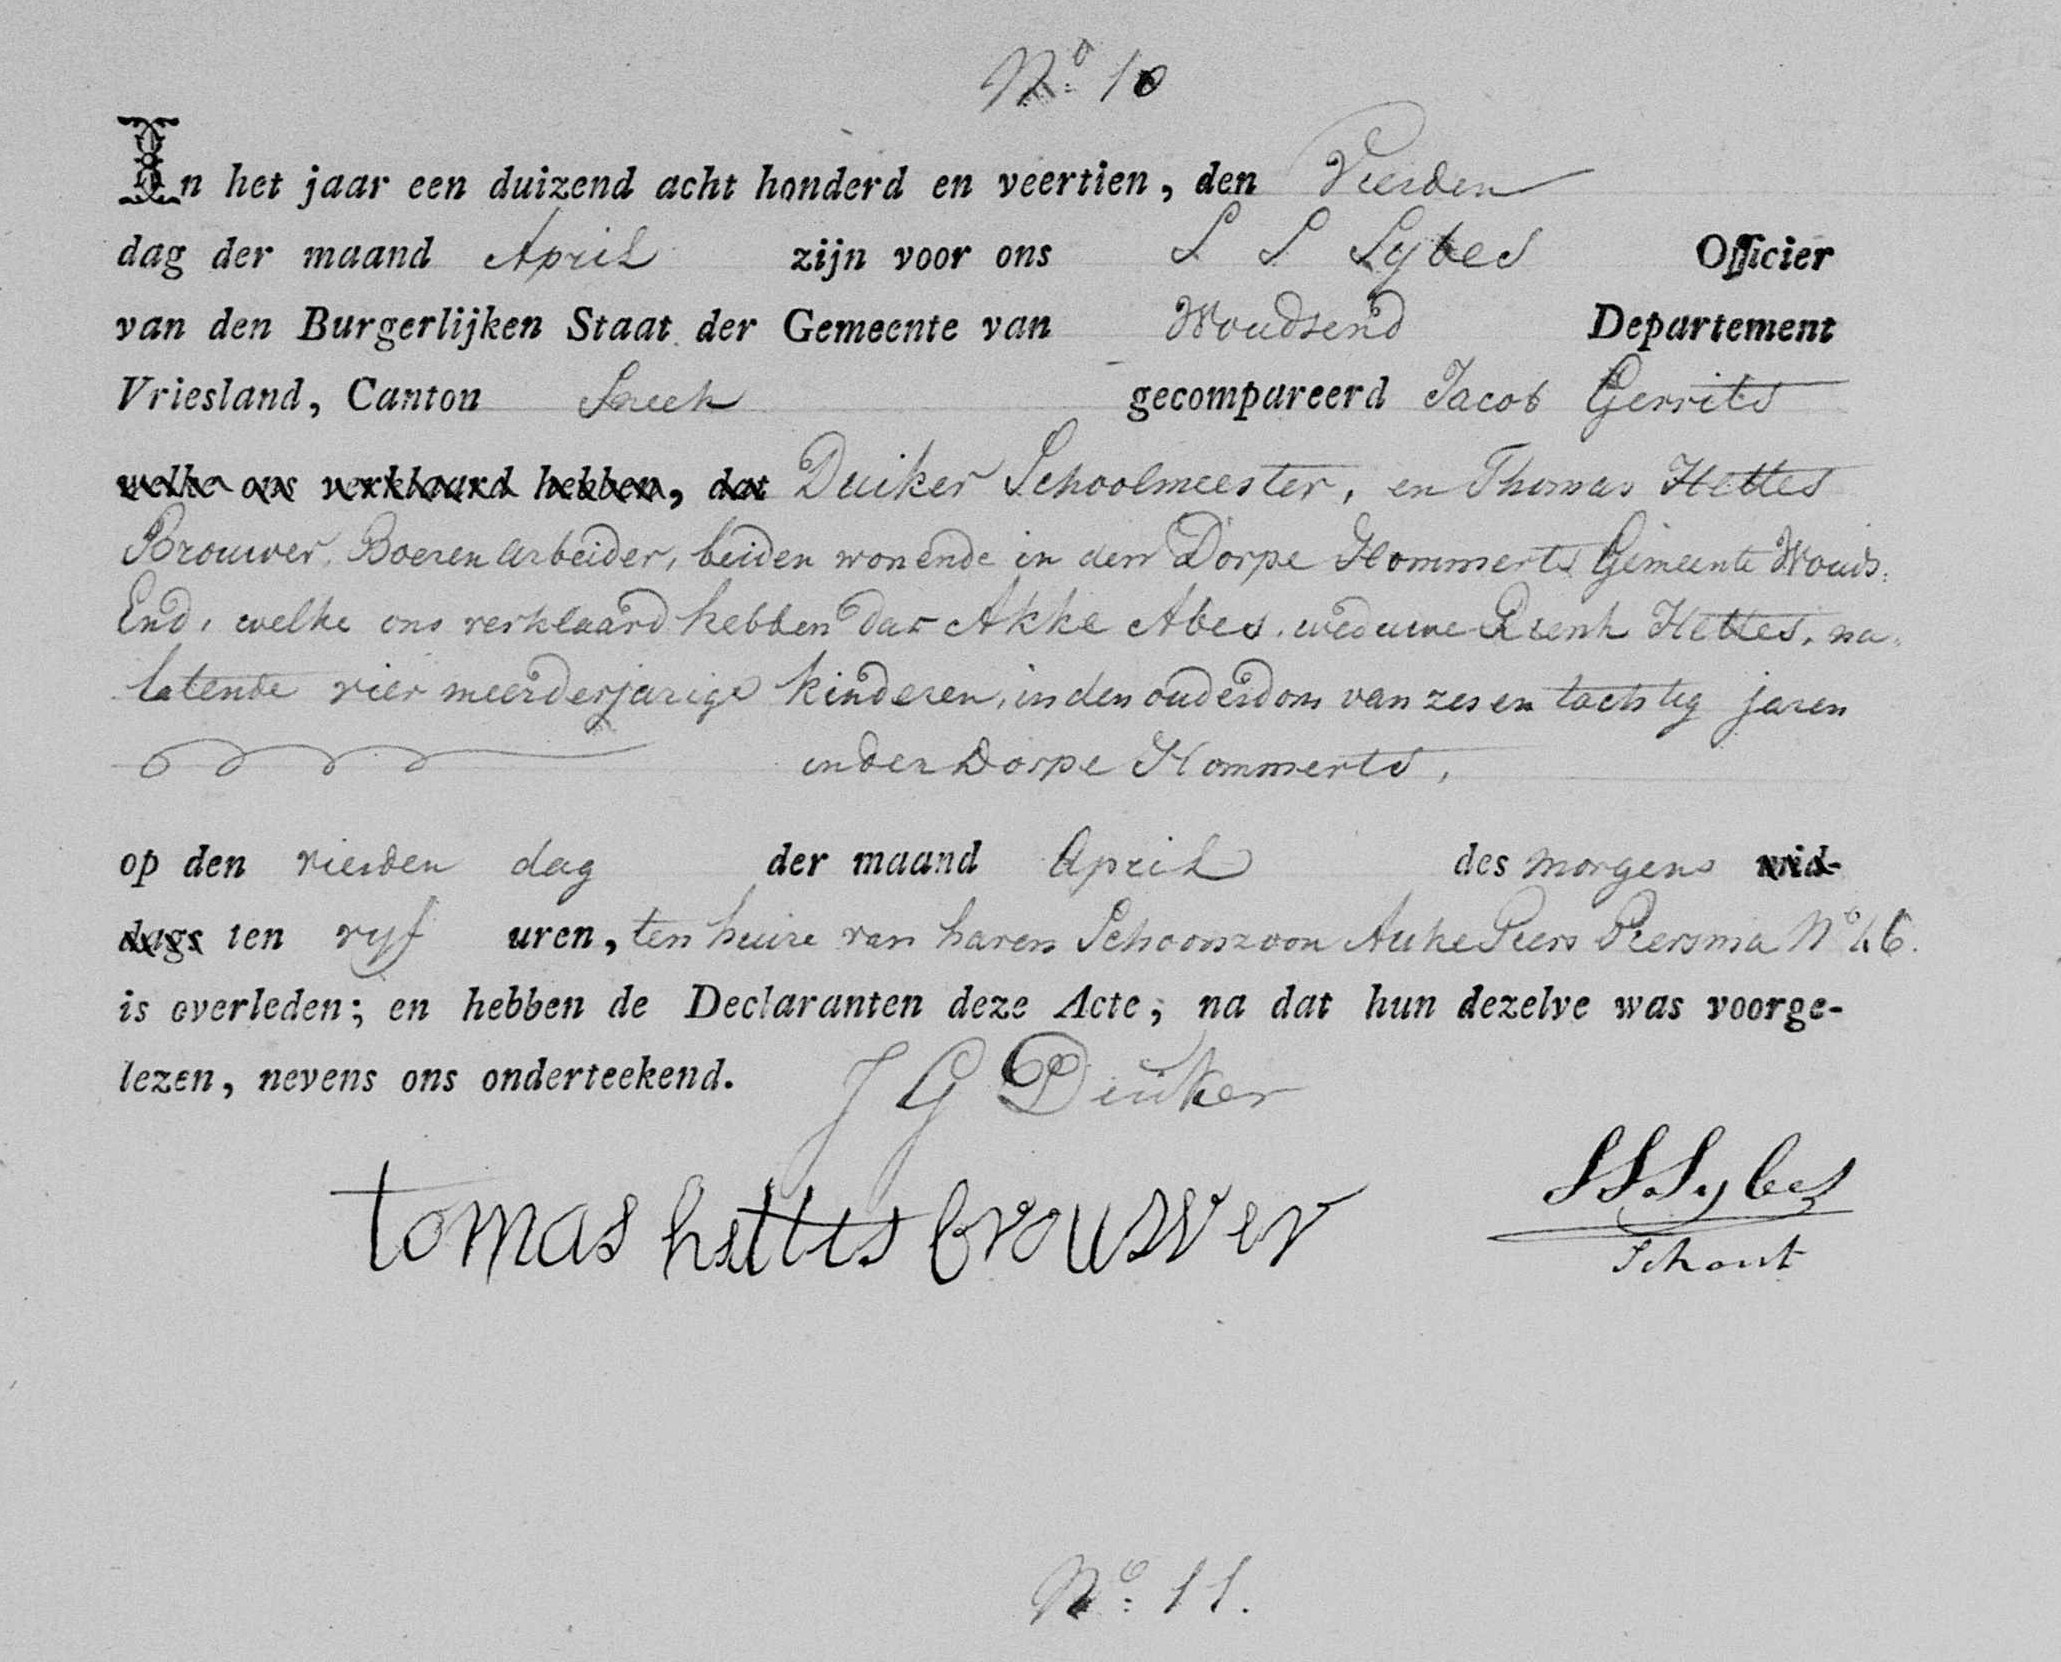 No. 10
In het jaar een duizend acht honderd en veertien, den Vierden
dag der maand April zijn voor ons S S Sybes Officier
van den Burgerlijken Staat der Gemeente van Woudsend Departement
Vriesland, Canton Sneek gecompareerd Jacob Gerrits
welke ons verklaard hebben, dat Duiker Schoolmeester, en Thomas Hettes
Brouwer, Boeren arbeider, beiden wonende in den Dorpe Hommerts Gemeente Wouds
End, welke ons verklaard hebben dat Akke Abes, weduwe Rienk Hettes, na
latende vier meerderjarige kinderen, in den ouderdom van zes en tachtig jaren
in den Dorpe Hommerts,
op den vierden dag der maand April des morgens mid-
dags ten vyf uren, ten huize van haren Schoonzoon Auke Piers Piersma No. 46.
is overleden; en hebben de Declaranten deze Acte, na dat hun dezelve was voorge-
lezen, nevens ons onderteekend.
J G Duiker
tomas hettes brouwer
S S Sybes
Schout
No. 11.